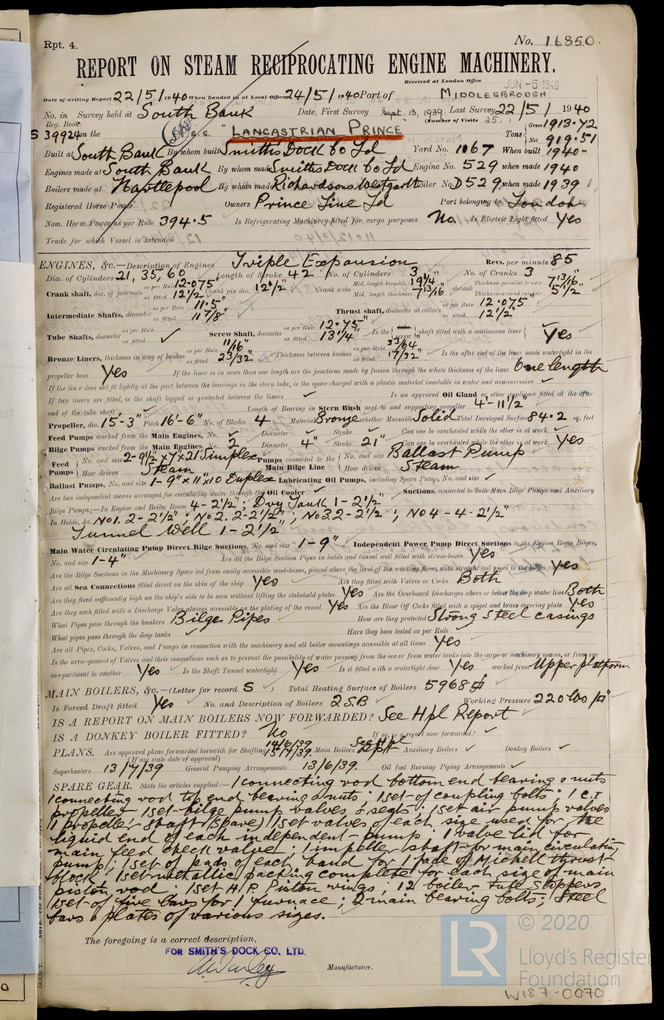 Rpt. 4.
No. 16850.
REPORT ON STEAM RECIPROCATING ENGINE MACHINERY.
Received at London Office JUN -5 1940
Date of writing Report 22/5/1940 When handed in at Local Office 24/5/1940 Port of MIDDLESBROUGH
No. in Survey held at South Bank Date, First Survey Sept. 13, 1939 Last Survey 22/5/1940
Reg. Book. (Number of Visits 25.)
39924 on the S.S. "LANCASTRIAN PRINCE" Tons Gross 1913.72 Net 919.51
Built at South Bank By whom built Smiths Dock Co Ld Yard No. 1067 When built 1940
Engines made at South Bank By whom made Smiths Dock Co Ld Engine No. 529 when made 1940
Boilers made at Hartlepool By whom made Richardsons Westgarth Boiler No. D529 when made 1939
Registered Horse Power Owners Prince Line Ld Port belonging to London
Nom. Horse Power as per Rule 394.5 Is Refrigerating Machinery fitted for cargo purposes No. Is Electric Light fitted Yes
Trade for which Vessel is intended
ENGINES, &c.—Description of Engines Triple Expansion Revs. per minute 85
Dia. of Cylinders 21, 35, 60 Length of Stroke 42 No. of Cylinders 3 No. of Cranks 3
Crank shaft, dia. of journals as per Rule 12.075 as fitted 12½" Crank pin dia. 12½" Crank webs Mid. length breadth 19¼" Mid. length thickness 7 13/16" shrunk Thickness parallel to axis 7 13/16" Thickness around eye-hole 5½"
Intermediate Shafts, diameter as per Rule 11.5" as fitted 11⅞" Thrust shaft, diameter at collars as per Rule 12.075 as fitted 12½"
Tube Shafts, diameter as per Rule as fitted Screw Shaft, diameter as per Rule 12.75" as fitted 13¼" Is the shaft fitted with a continuous liner Yes
Bronze Liners, thickness in way of bushes as per Rule 11/16" as fitted 23/32" Thickness between bushes as per Rule 33/64 as fitted 17/32" Is the after end of the liner made watertight in the
propeller boss Yes If the liner is in more than one length are the junctions made by fusion through the whole thickness of the liner One length
If the liner does not fit tightly at the part between the bearings in the stern tube, is the space charged with a plastic material insoluble in water and non-corrosive
If two liners are fitted, is the shaft lapped or protected between the liners Is an approved Oil Gland or other appliance fitted at the after
end of the tube shaft Length of Bearing in Stern Bush next to and supporting propeller 4-11½"
Propeller, dia. 15'-3" Pitch 16'-6" No. of Blades 4 Material Bronze whether Moveable Solid Total Developed Surface 84.2 sq. feet
Feed Pumps worked from the Main Engines, No. Diameter Stroke Can one be overhauled while the other is at work
Bilge Pumps worked from the Main Engines, No. 2 Diameter 4" Stroke 21" Can one be overhauled while the other is at work Yes
Feed Pumps No. and size 2-9½" x 7 x 21 Simplex How driven Steam Pumps connected to the Main Bilge Line No. and size Ballast Pump How driven Steam
Ballast Pumps, No. and size 1-9" x 11" x 10 Duplex Lubricating Oil Pumps, including Spare Pump, No. and size
Are two independent means arranged for circulating water through the Oil Cooler Suctions, connected to both Main Bilge Pumps and Auxiliary
Bilge Pumps;—In Engine and Boiler Room 4-2½"; Dry Tank 1-2½"
In Holds, &c. No 1. 2-2½"; No 2, 2-2½"; No 3 2-2½"; No 4-4-2½"
Tunnel Well 1-2½
Main Water Circulating Pump Direct Bilge Suctions, No. and size 1-9" Independent Power Pump Direct Suctions to the Engine Room Bilges,
No. and size 1-4" Are all the Bilge Suction Pipes in holds and tunnel well fitted with strum-boxes Yes
Are the Bilge Suctions in the Machinery Space led from easily accessible mud-boxes, placed above the level of the working floor, with straight tail pipes to the bilges Yes
Are all Sea Connections fitted direct on the skin of the ship Yes Are they fitted with Valves or Cocks Both
Are they fixed sufficiently high on the ship's side to be seen without lifting the stokehold plates Yes Are the Overboard Discharges above or below the deep water line Both
Are they each fitted with a Discharge Valve always accessible on the plating of the vessel Yes Are the Blow Off Cocks fitted with a spigot and brass covering plate Yes
What Pipes pass through the bunkers Bilge Pipes How are they protected Strong steel casings
What pipes pass through the deep tanks Have they been tested as per Rule
Are all Pipes, Cocks, Valves, and Pumps in connection with the machinery and all boiler mountings accessible at all times Yes
Is the arrangement of Valves and their connections such as to prevent the possibility of water passing from the sea or from water tanks into the cargo or machinery spaces, or from any
one compartment to another Yes Is the Shaft Tunnel watertight Yes Is it fitted with a watertight door Yes worked from Upper platform
MAIN BOILERS, &c.—(Letter for record S) Total Heating Surface of Boilers 5968
Is Forced Draft fitted Yes No. and Description of Boilers 2 S.B Working Pressure 220 lbs/□"
IS A REPORT ON MAIN BOILERS NOW FORWARDED? See Hpl Report
IS A DONKEY BOILER FITTED? No If so, is a report now forwarded?
PLANS. Are approved plans forwarded herewith for Shafting 14/6/39 15/9/39 Main Boilers See Hpl Rpt Auxiliary Boilers Donkey Boilers
(If not state date of approval)
Superheaters 13/7/39 General Pumping Arrangements 13/6/39. Oil fuel Burning Piping Arrangements
SPARE GEAR. State the articles supplied:— 1 connecting rod bottom end bearing & nuts
1 connecting rod top end bearing & nuts; 1 set of coupling bolts; 1 C.I
propeller; 1 set bilge pump valves & seats; 1 set air pump valves
1 propeller shaft (spare) 1 set valves of each size used for the
liquid end of each independent pump; 1 valve lid for
main feed check valve; 1 impeller shaft for main circulating
pump; 1 set of pads of each hand for 1 face of Michell thrust
block; 1 set metallic packing complete for each size of main
piston rod; 1 set H.P. Piston rings; 12 boiler tube stoppers
1 set of fire bars for 1 furnace; 2 main bearing bolts; Steel
bars & plates of various sizes.
The foregoing is a correct description,
FOR SMITH'S DOCK CO. LTD.
Manufacturer.
© 2020
LR
Lloyd's Register
Foundation
W187-0070